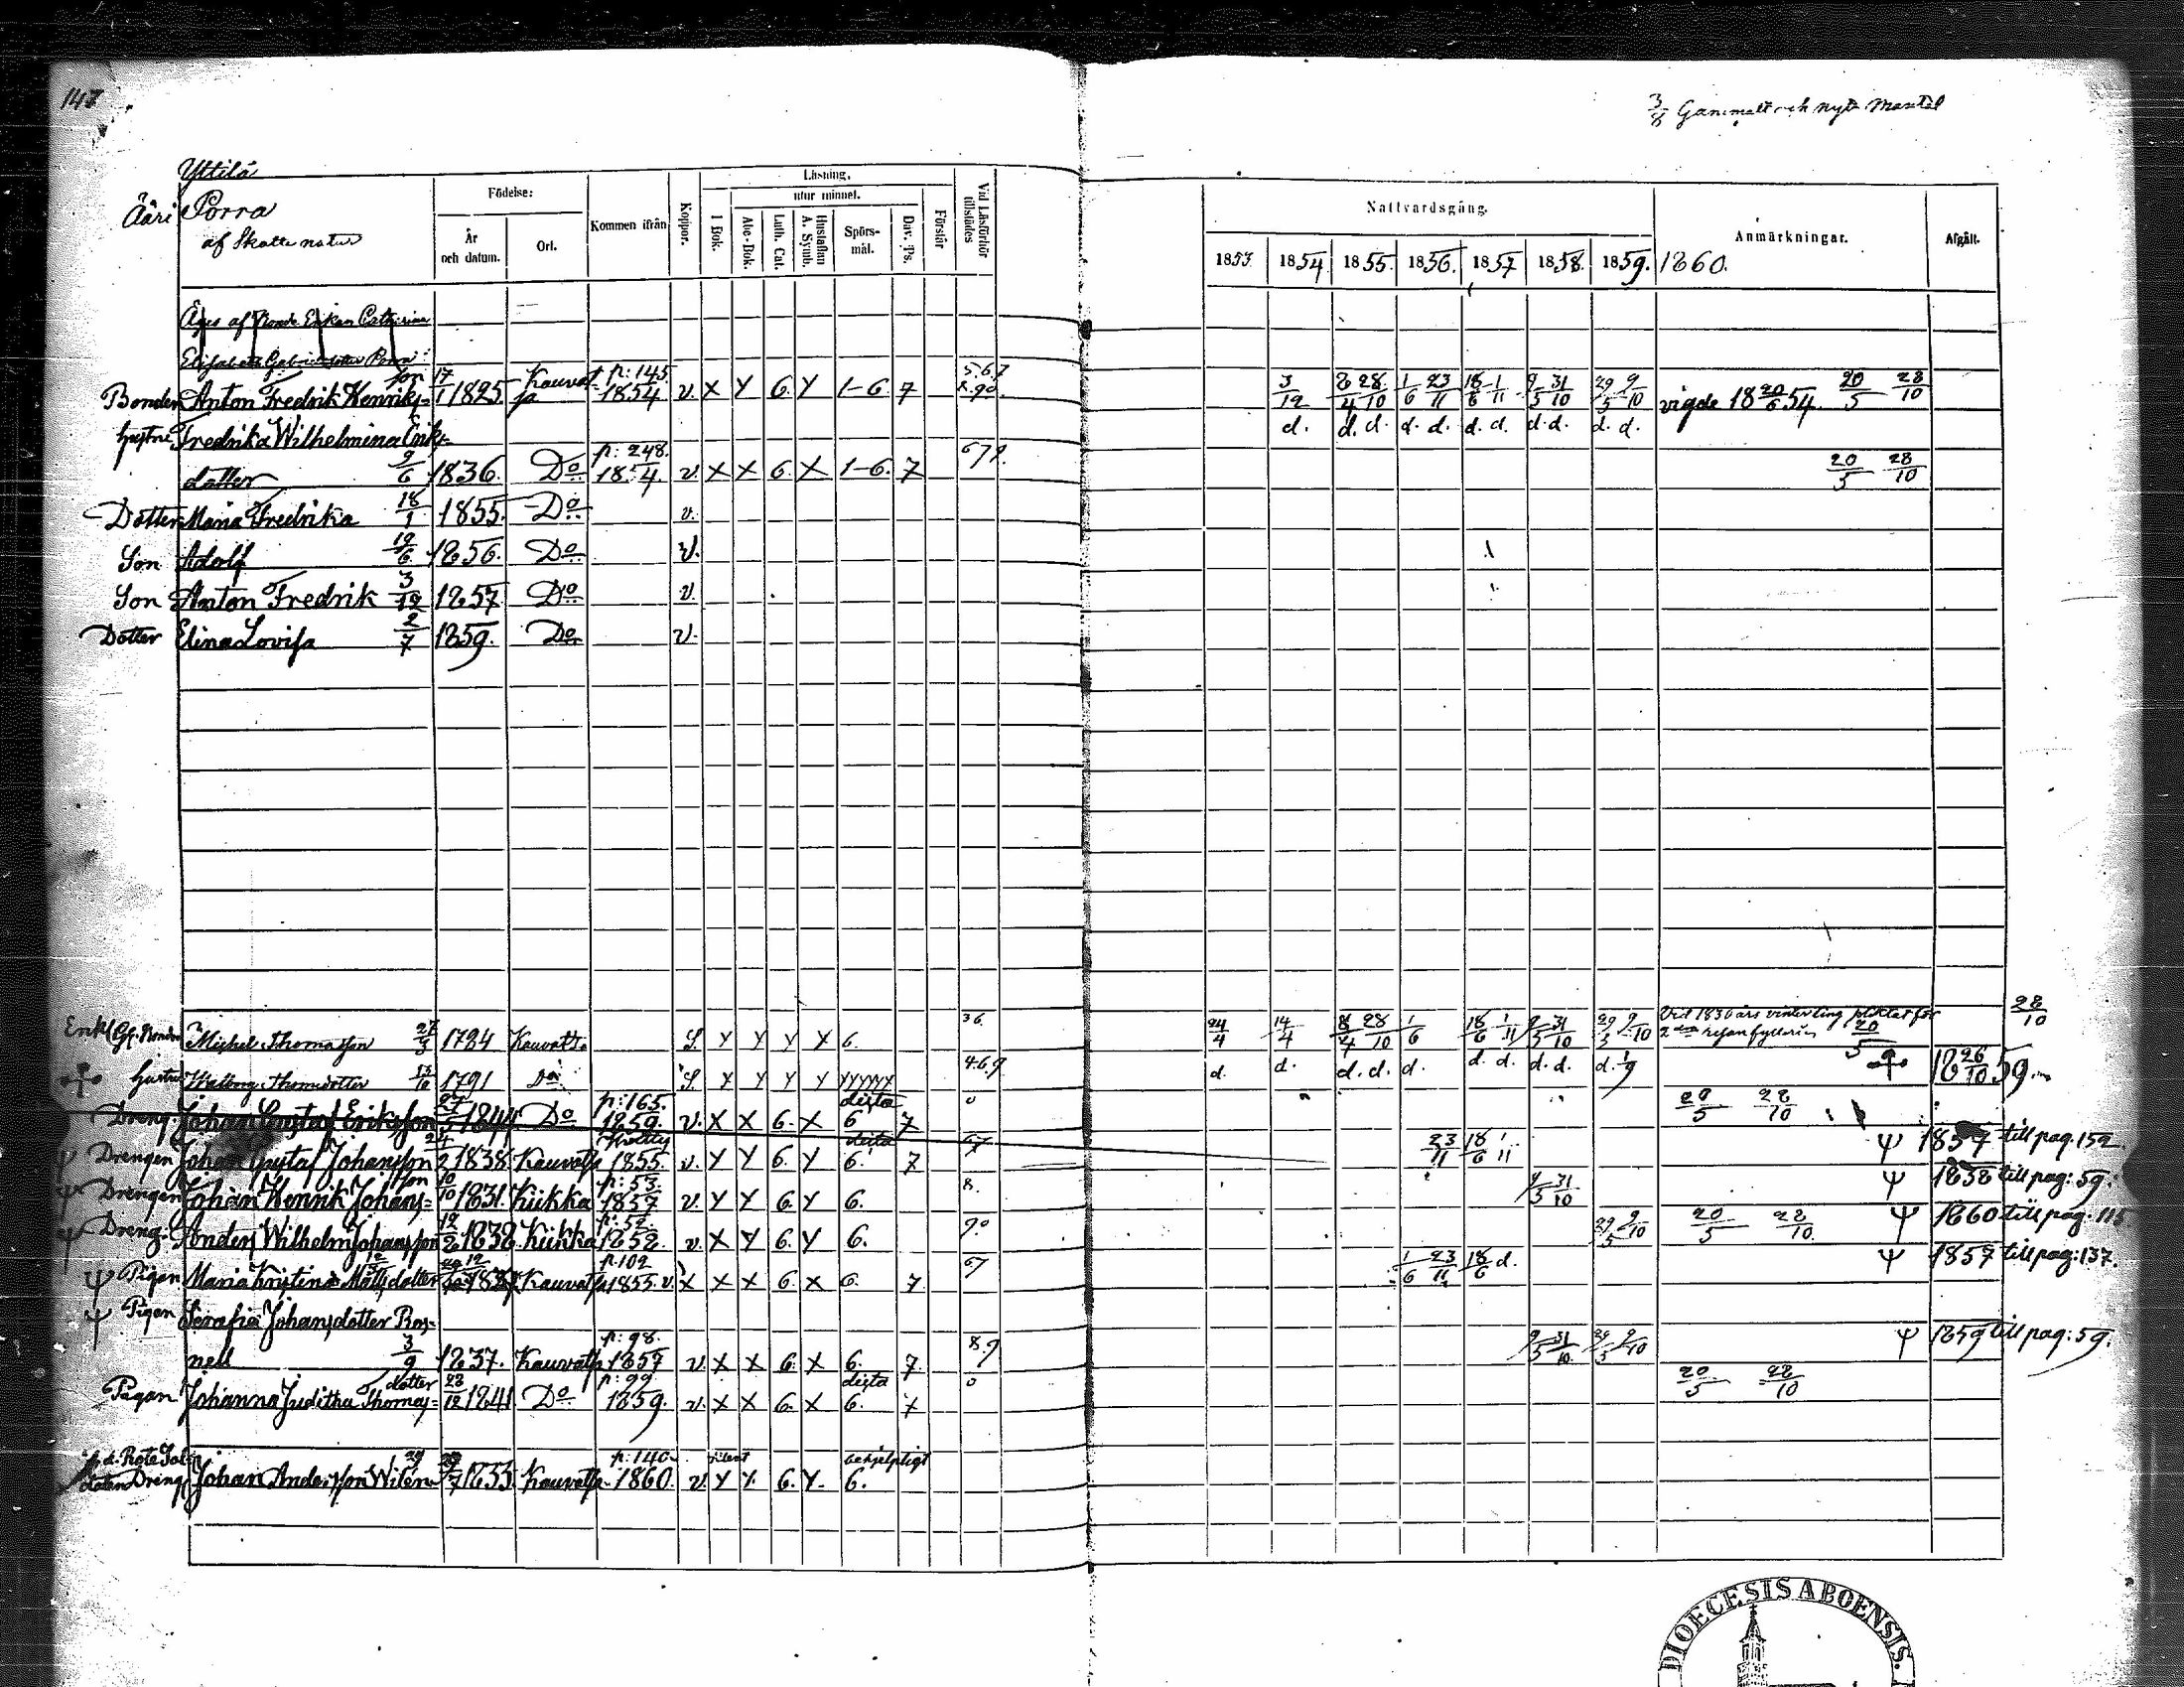 147
3/8 Gammalt och nytt Mantal
Yttilä
Ääri Porra
af Skatte natur
Födelse:
År och datum.
Ort.
Kommen ifrån
Koppor.
Läsning.
utur minnet.
I Bok.
Abc-Bok.
Luth. Cat.
Hustaflan A. Symb.
Spörsmål.
Dav. Ps.
Förstår
Vid Läsförhör tillstädes
Nattvardsgång.
1853. 1854. 1855. 1856. 1857. 1858. 1859. 1860.
Anmärkningar.
Afgått.
Äges af Bonde Enkan Catharina
Elisabeth Gabrielsdotter Porra
Bonden Anton Fredrik Henriksson 17/1 1825 Kauvatsa p: 145 1854 v. X Y 6. Y 1-6. 7 3/12 8/4 28/10 1/6 23/11 18/6 1/11 9/5 31/10 29/5 9/10 vigde 18 20/6 54. 20/5 28/10
hustru Fredrika Wilhelmina Eriks= d. d. d. d. d. d. d. d. d. d. d.
dotter 9/6 1836. Do p: 248. 1854. v. X X 6. X 1-6. 7 679. 20/5 28/10
Dotter Maria Fredrika 18/1 1855. Do v.
Son Adolf 19/6 1856. Do v.
Son Anton Fredrik 3/12 1857 Do v.
Dotter Elina Lovisa 2/7 1859. Do v.
Michel Thomasson 27/3 1784 Kauvatsa S. Y Y Y Y 6. 36. 24/4 14/4 8/4 28/10 1/6 18/6 1/11 9/5 31/10 29/5 9/10 Vid 1836 års vinter ting pliktat för 28/10
2 resan fylleri 20/5
hustru Walborg Thomasdotter 13/10 1791 Do S. Y Y Y Y YYYYYY 4.6.9 d. d. d. d. d. d. d. d. d. d. 18 26/10 59.
Dreng. Johan Gustaf Eriksson 27/5 1844 Do p: 165. 1859. v. X X 6. X 6 7 0 20/5 28/10
Drengen Johan Gustaf Johansson 24/2 1838. Kauvatsa 1855. v. Y Y 6. Y 6. 7 67 23/11 18/6 1/11 Ψ 1857 till pag. 152.
Drengen Johan Henrik Johansson 10/10 1831. Kiikka p: 53. 1857 v. Y Y 6. Y 6. 8. 9/5 31/10 Ψ 1858 till pag: 59.
Dreng. Anders Wilhelm Johansson 12/2 1838. Kiikka p: 52. 1858. v. X Y 6. Y 6. 9.0 29/5 9/10 20/5 28/10 Ψ 1860 till pag. 115
Ψ Pigan Maria Kristina Matsdotter Kauvatsa p. 102 1855. v. X X X 6. X 6. 7. 67 1/6 23/11 18/6 d. Ψ 1857 till pag: 137.
Ψ Pigan Serafia Johansdotter Ros=
nell 3/9 1837. Kauvatsa p: 98. 1857 v. X X 6. X 6. 7. 8.9 9/5 31/10 29/5 9/10 Ψ 1859 till pag: 59.
Pigan Johanna Juditha Thomasdotter 23/12 1841. Do p: 99 1859. v. X X 6. X 6. 7 0 20/5 28/10
Dreng Johan Andersson Wilén 29/7 1833. Kauvatsa p: 140. 1860. v. Y Y. 6. Y. behjelpligt 6.
DIOECESIS ABOENSIS.